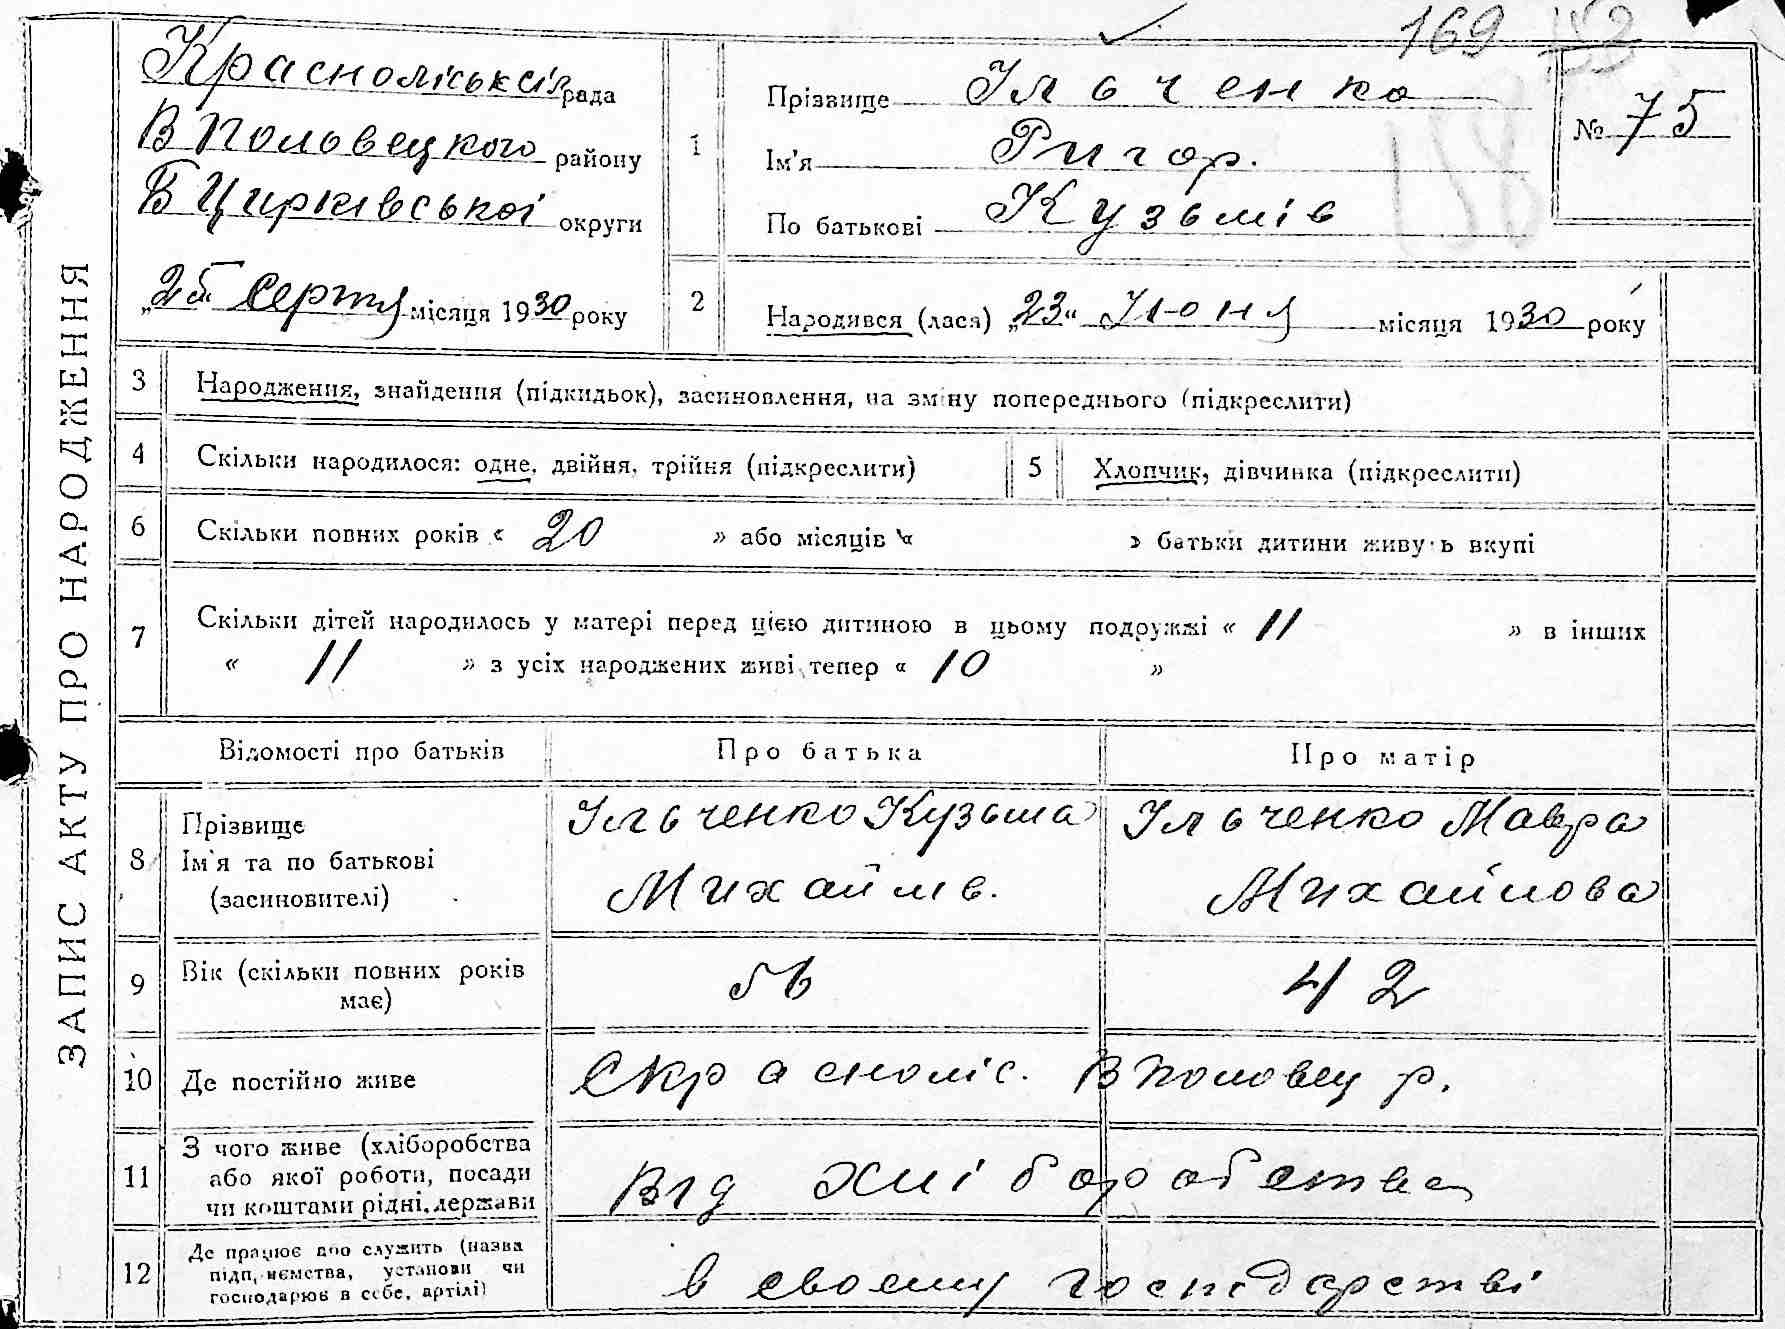 169
ЗАПИС АКТУ ПРО НАРОДЖЕННЯ
Красноліськ сіл рада
В Половецкого району
Б Цирківської округи
„25“ серпня місяця 1930 року
1 Прізвище Ільченко
Ім'я Ригор.
По батькові Кузьмів
№ 75
158
2 Народився (лася) „23“ Июня місяця 1930 року
3 Народження, знайдення (підкидьок), засиновлення, на зміну попереднього (підкреслити)
4 Скільки народилося: одне, двійня, трійня (підкреслити) 5 Хлопчик, дівчинка (підкреслити)
6 Скільки повних років « 20 » або місяців « » батьки дитини живуть вкупі
7 Скільки дітей народилось у матері перед цією дитиною в цьому подружжі « 11 » в інших
« 11 » з усіх народжених живі тепер « 10 »
Відомості про батьків Про батька Про матір
8 Прізвище
Ім'я та по батькові
(засиновителі)
Ільченко Кузьма
Михайлів.
Ільченко Мавра
Михайлова
9 Вік (скільки повних років
має)
56 42
10 Де постійно живе С Красноліс. В Половец р.
11 З чого живе (хліборобства
або якої роботи, посади
чи коштами рідні, держави
Від хліборобства
12 Де працює або служить (назва
підприємства, установи чи
господарює в себе, артілі)
в своему господарстві